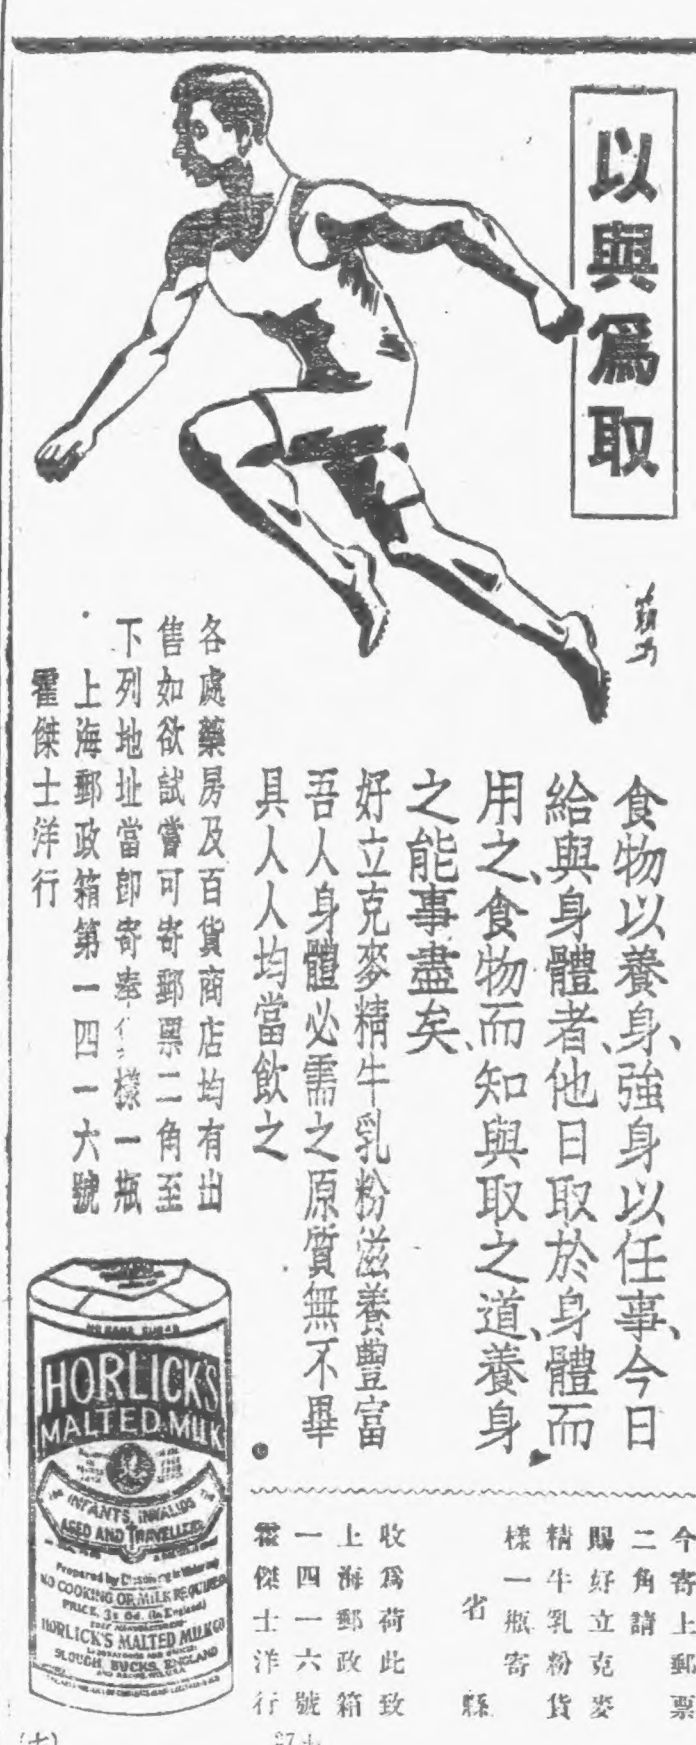 以與爲取
食物以養身、強身以任事、今日
給與身體者、他日取於身體而
用之、食物而知與取之道、養身
之能事盡矣、
好立克麥精牛乳粉滋養豐富
吾人身體必需之原質無不畢
具人人均當飲之
各處藥房及百貨商店均有出
售如欲試嘗可寄郵票二角至
下列地址當卽寄奉 樣一瓶
上海郵政箱第一四一六號
霍傑士洋行
HORLICK'S
MALTED MILK
INFANTS, INVALIDS
AGED AND TRAVELLERS
Prepared by Dissolving in Water only
NO COOKING OR MILK REQUIRED
PRICE, 3s 0d. (in England)
HORLICK'S MALTED MILK CO
SLOUGH, BUCKS, ENGLAND
今寄上郵票
二角請
賜好立克麥
精牛乳粉貨
樣一瓶寄
省 縣
收爲荷此致
上海郵政箱
一四一六號
霍傑士洋行
(七)